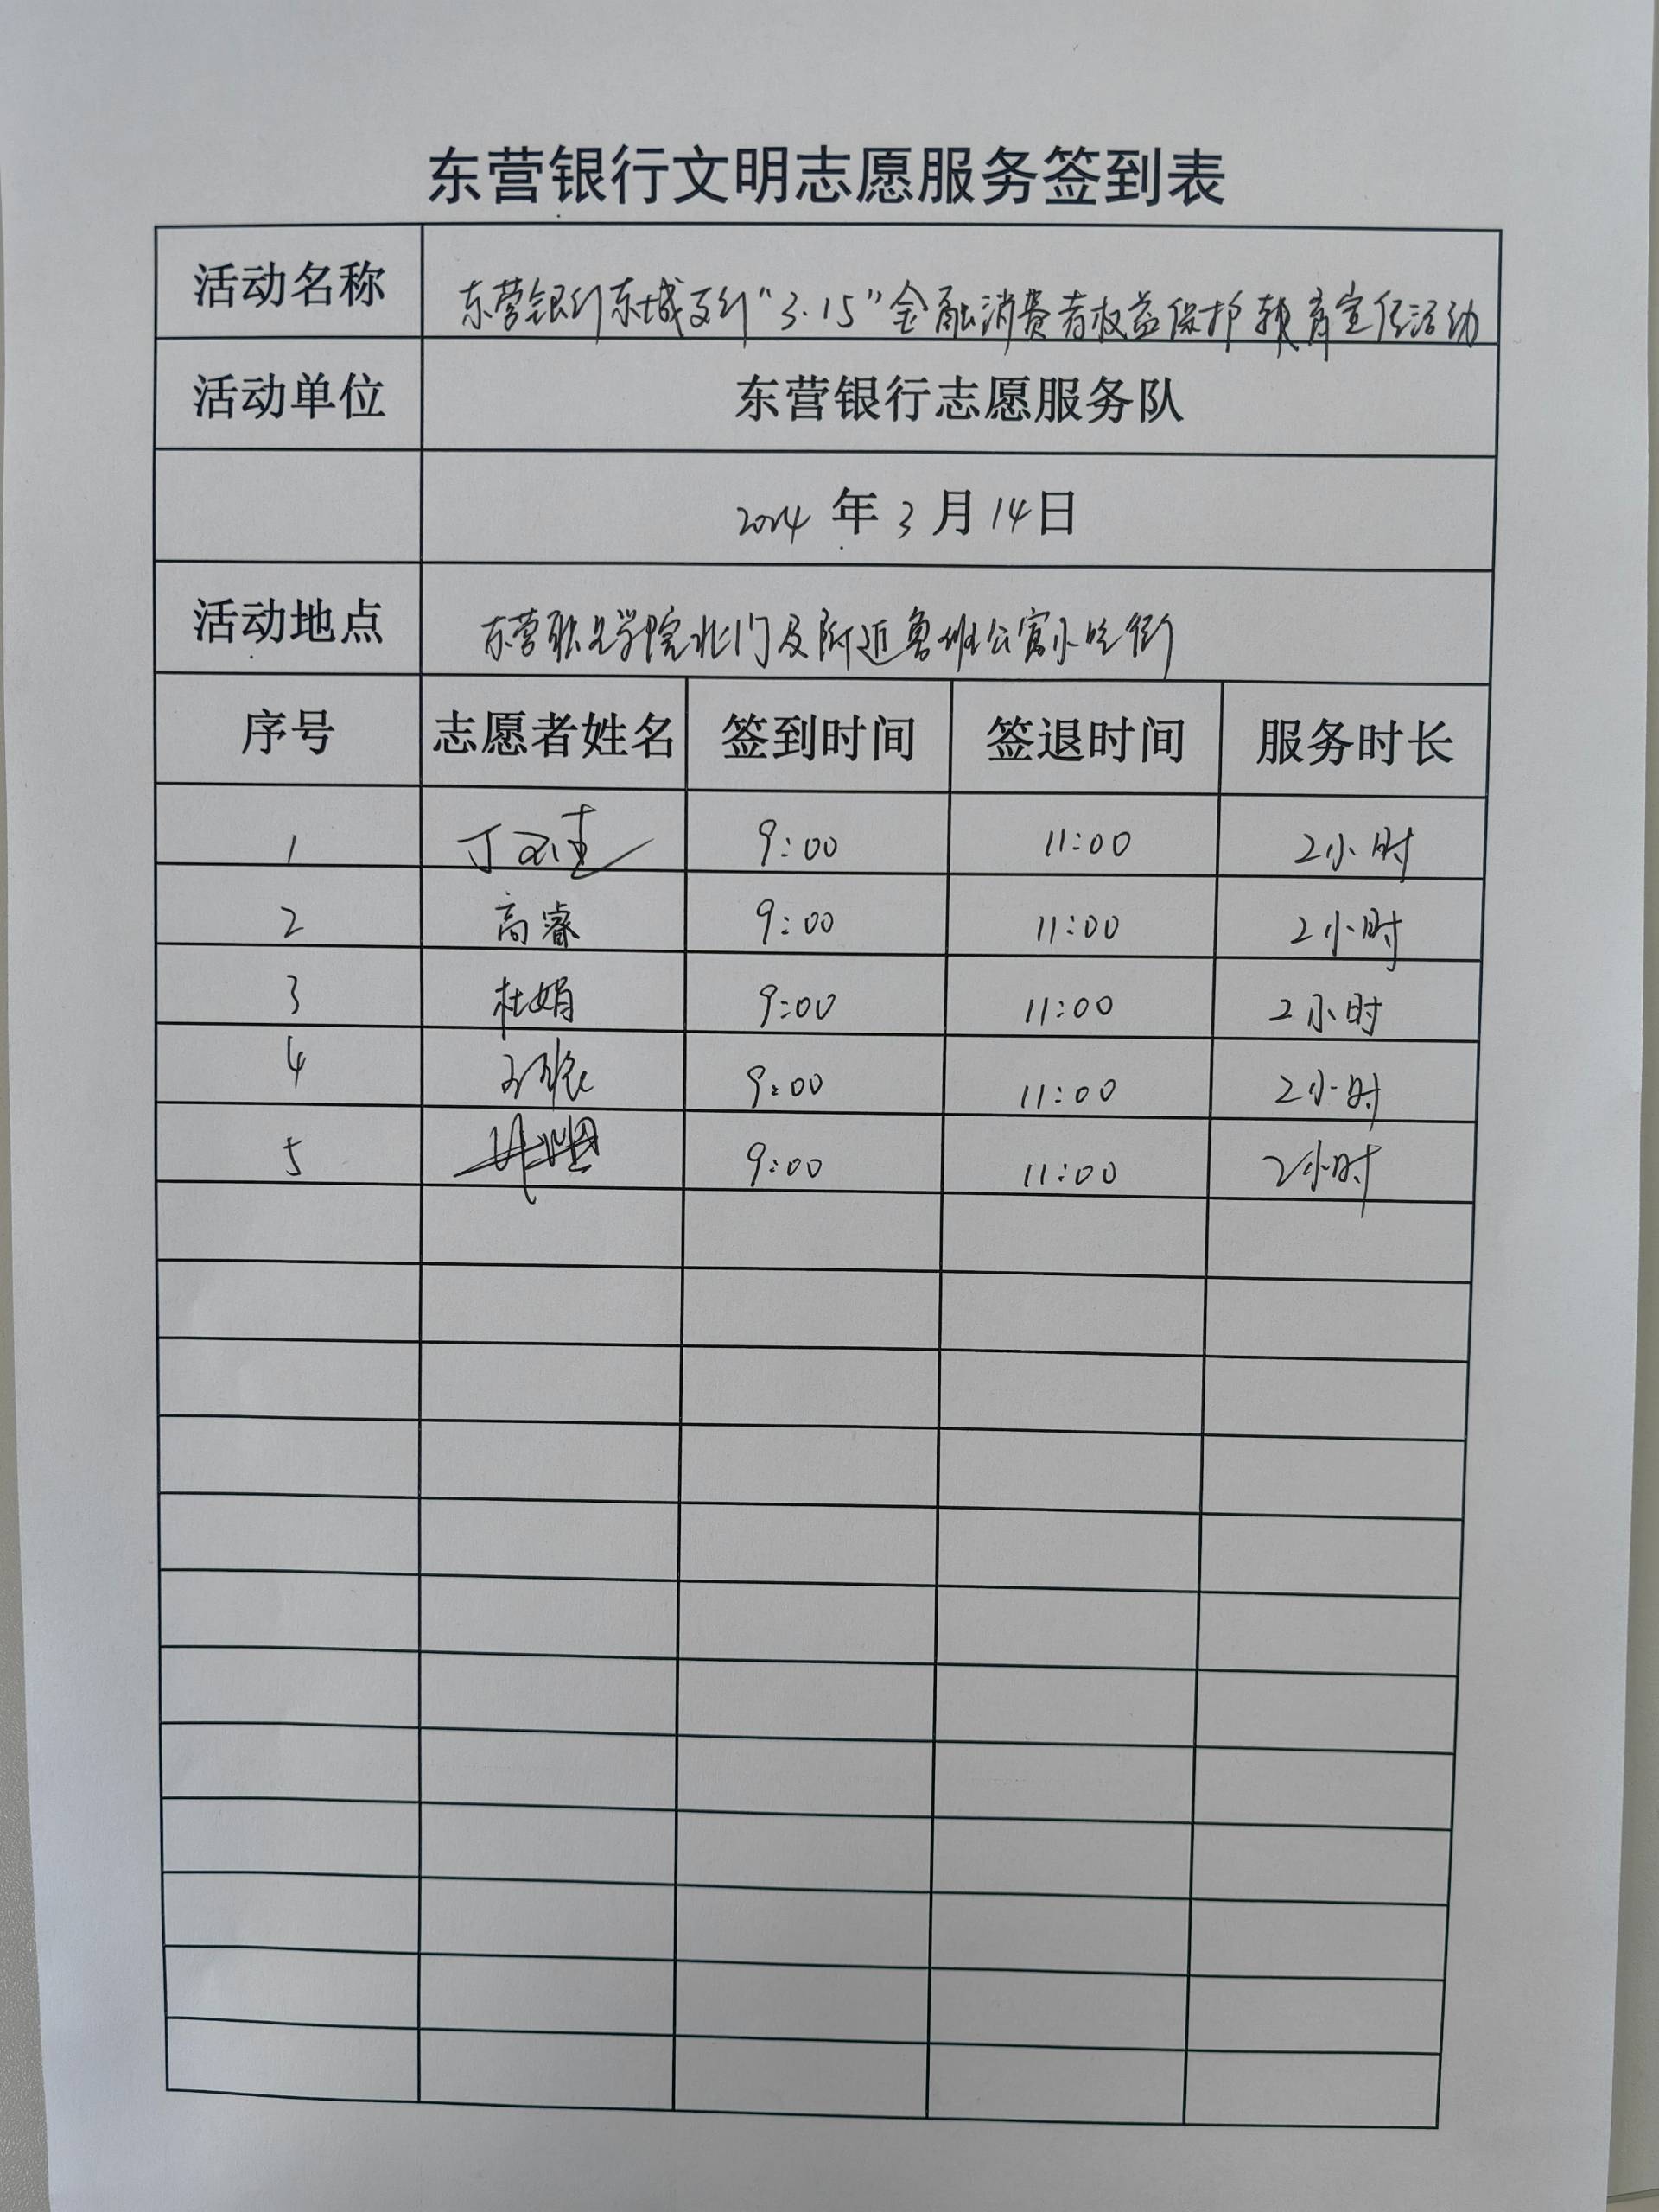 东营银行文明志愿服务签到表
活动名称 东营银行东城支行“3·15”金融消费者权益保护教育宣传活动
活动单位 东营银行志愿服务队
2024 年 3 月 14 日
活动地点 东营职业学院北门及附近鲁班公寓小吃街
序号 志愿者姓名 签到时间 签退时间 服务时长
1 丁 9:00 11:00 2小时
2 高睿 9:00 11:00 2小时
3 杜娟 9:00 11:00 2小时
4 9:00 11:00 2小时
5 9:00 11:00 2小时